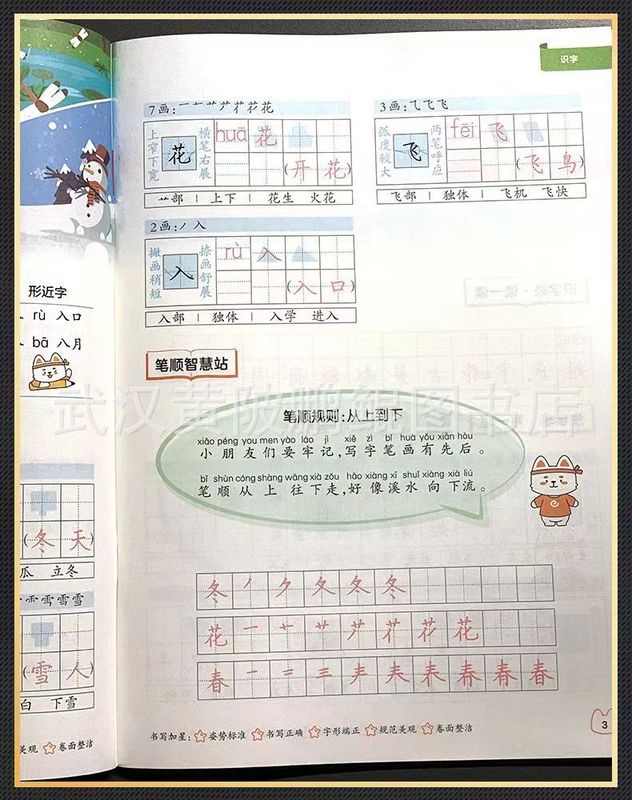 识字
7画:
花
上窄下宽
花
横笔右展
huā 花
(开花)
艹部 | 上下 | 花生 火花
3画:
飞
弧度较大
飞
两笔呼应
fēi 飞
(飞鸟)
飞部 | 独体 | 飞机 飞快
2画:ノ入
撇画稍短
入
捺画舒展
rù 入
(入口)
入部 | 独体 | 入学 进入
形近字
rù 入口
bā 八月
冬天
瓜 立冬
雪雪雪
雪人)
白 下雪
美观 卷面整洁
笔顺智慧站
笔顺规则:从上到下
xiǎo péng you men yào láo jì xiě zì bǐ huà yǒu xiān hòu
小朋友们要牢记,写字笔画有先后。
bǐ shùn cóng shàng wǎng xià zǒu hǎo xiàng xī shuǐ xiàng xià liú
笔顺从上往下走,好像溪水向下流。
冬 ノ ク 夂 冬 冬
花 一 艹 花
春 一 二 三 春
书写加星: 姿势标准 书写正确 字形端正 规范美观 卷面整洁
3
武汉黄陂鹏鲲图书店